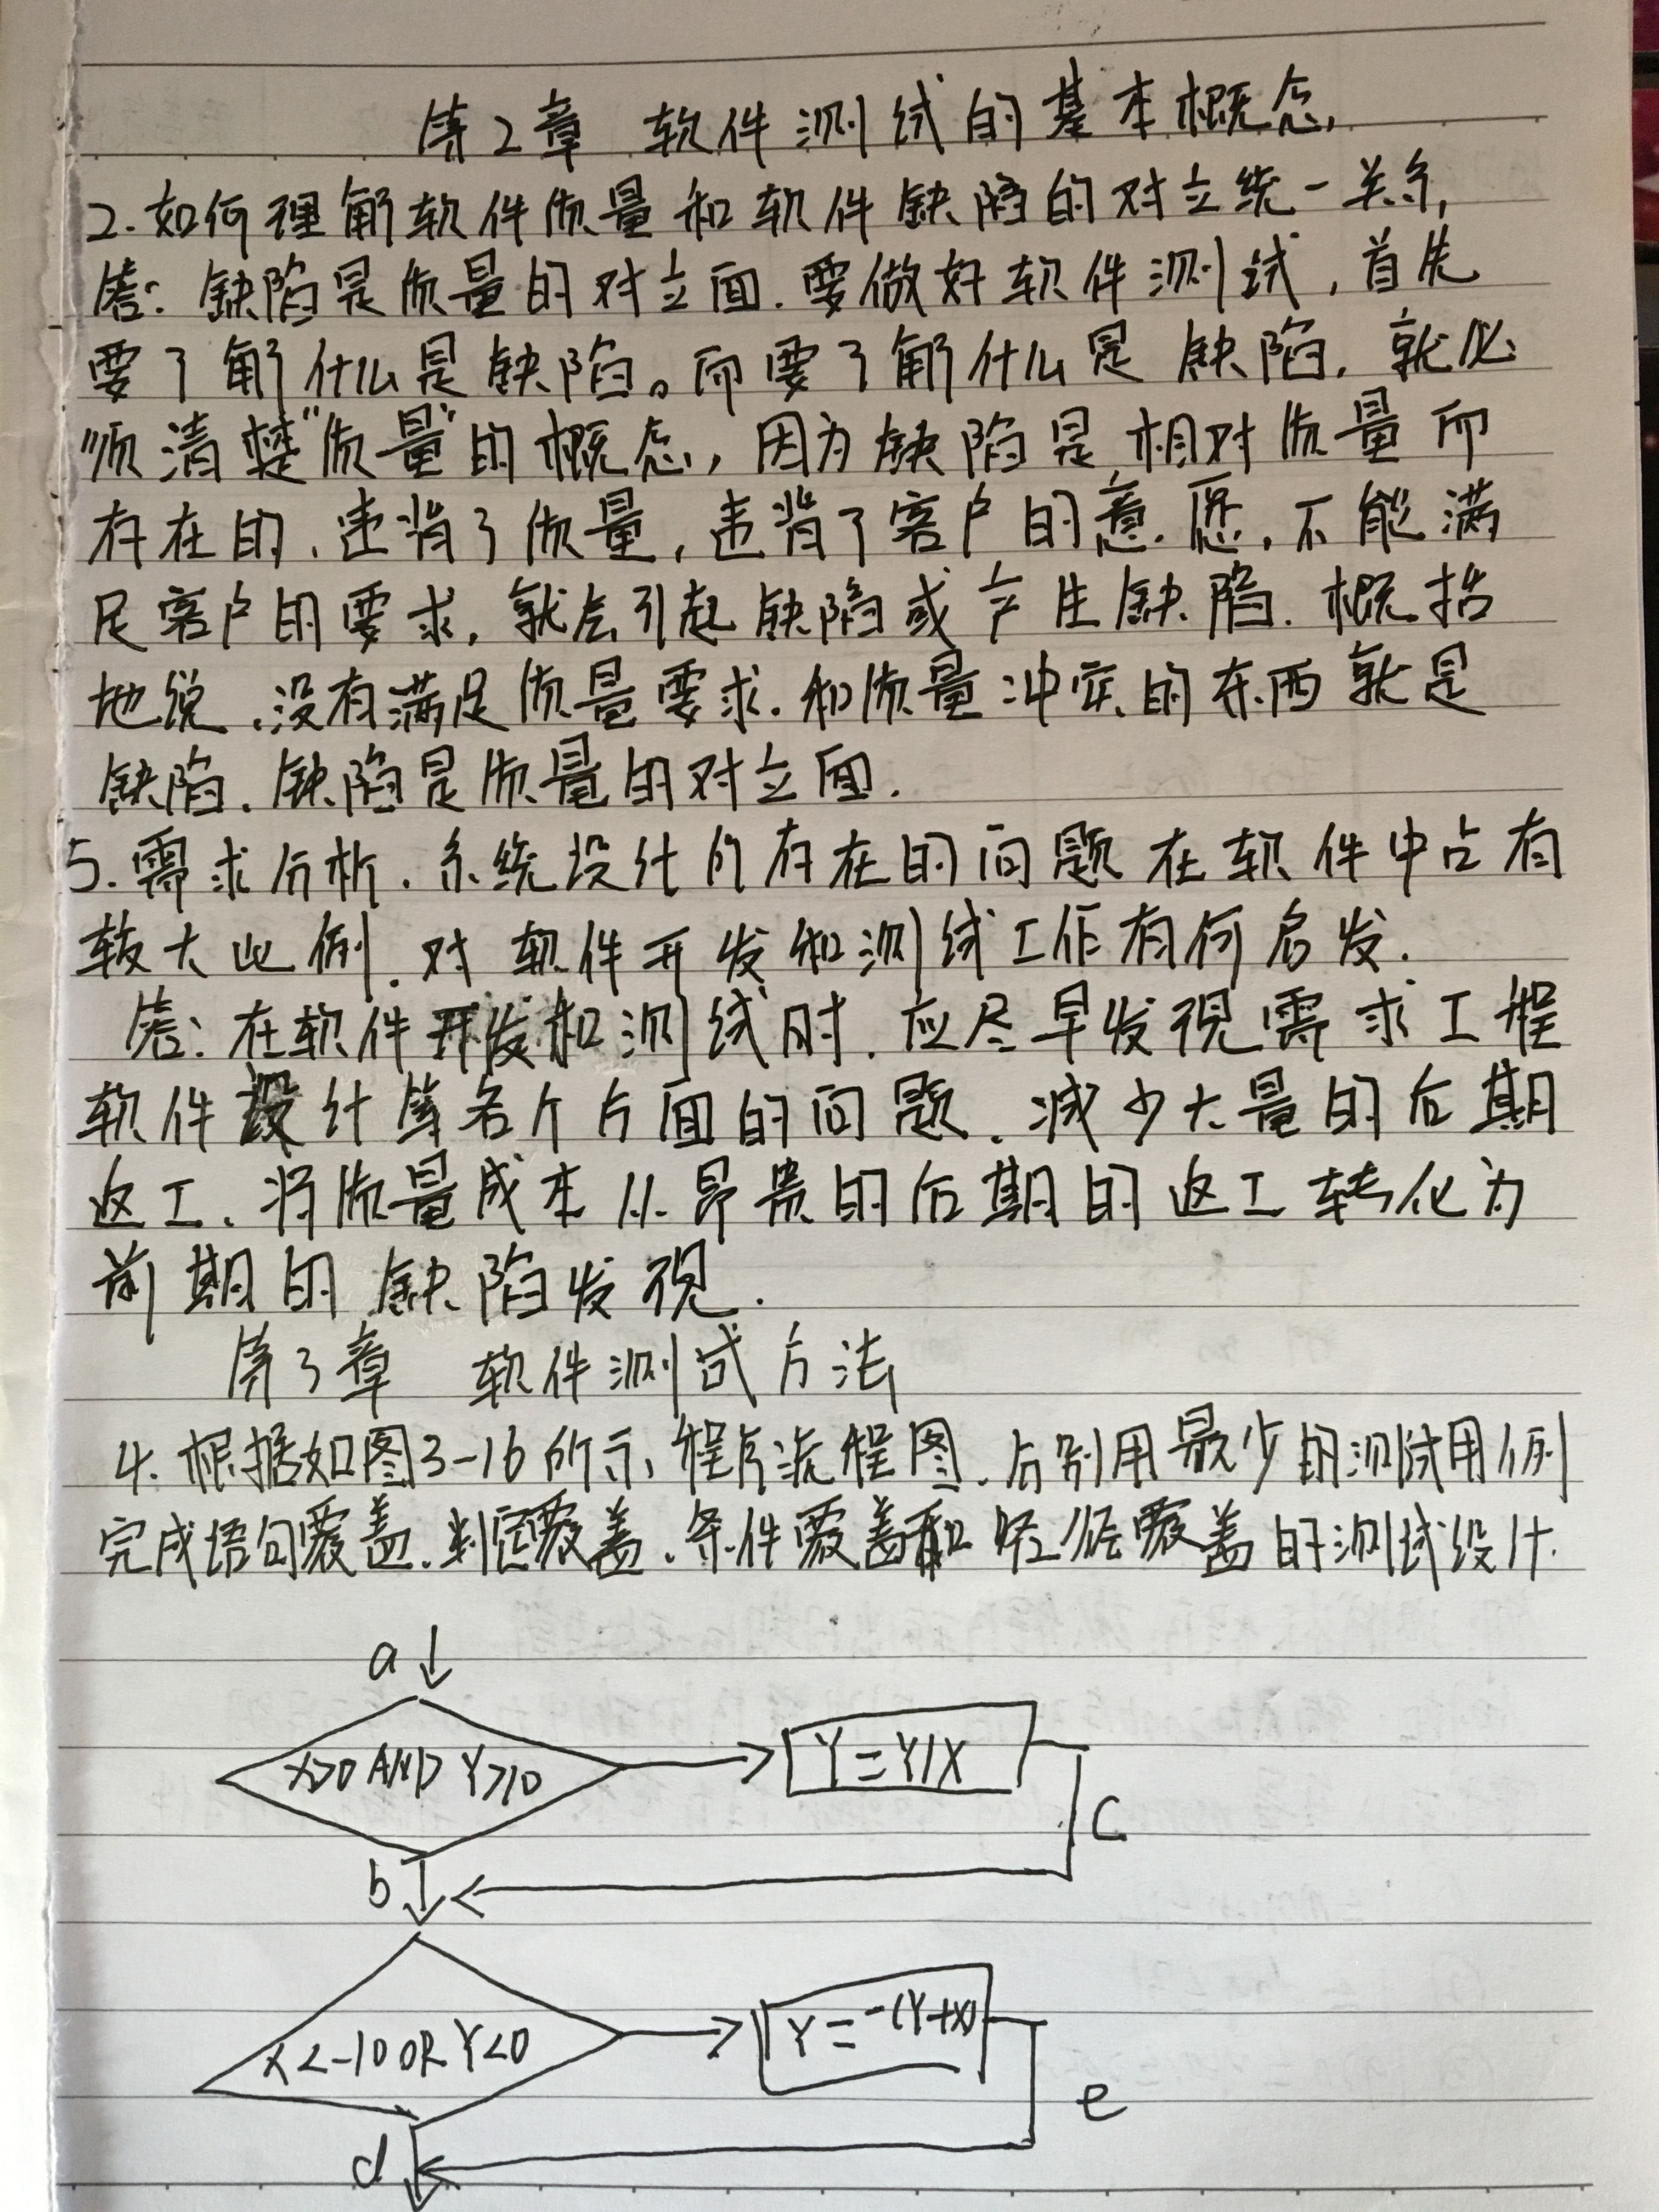 第2章 软件测试的基本概念.
2.如何理解软件质量和软件缺陷的对立统一关系,
答: 缺陷是质量的对立面.要做好软件测试,首先
要了解什么是缺陷。而要了解什么是缺陷.就必
须清楚"质量"的概念,因为缺陷是相对质量而
存在的.违背了质量,违背了客户的意愿,不能满
足客户的要求,就会引起缺陷或产生缺陷.概括
地说.没有满足质量要求.和质量冲突的东西就是
缺陷.缺陷是质量的对立面.
5.需求分析.系统设计的存在的问题在软件中占有
较大比例.对软件开发和测试工作有何启发.
答:在软件开发和测试时.应尽早发现需求工程
软件设计等各个方面的问题.减少大量的后期
返工.将质量成本从昂贵的后期的返工转化为
前期的缺陷发现.
第3章 软件测试方法
4.根据如图3-16所示,程序流程图.分别用最少的测试用例
完成语句覆盖.判定覆盖.条件覆盖和路径覆盖的测试设计.
a
X>0 AND Y>10
Y=Y/X
c
b
X<-10 OR Y<0
Y=-(Y+X)
e
d